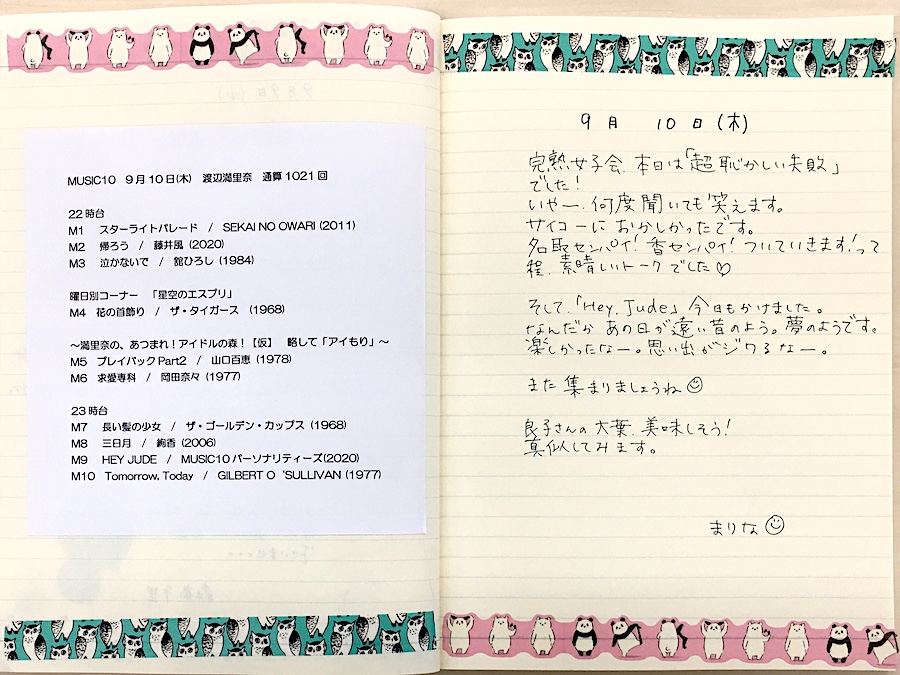 MUSIC10 9月10日(木) 渡辺満里奈 通算1021回
22時台
M1 スターライトパレード / SEKAI NO OWARI (2011)
M2 帰ろう / 藤井風 (2020)
M3 泣かないで / 舘ひろし (1984)
曜日別コーナー 「星空のエスプリ」
M4 花の首飾り / ザ・タイガース (1968)
～満里奈の、あつまれ！アイドルの森！【仮】 略して「アイもり」～
M5 プレイバックPart2 / 山口百恵 (1978)
M6 求愛専科 / 岡田奈々 (1977)
23時台
M7 長い髪の少女 / ザ・ゴールデン・カップス (1968)
M8 三日月 / 絢香 (2006)
M9 HEY JUDE / MUSIC10パーソナリティーズ(2020)
M10 Tomorrow, Today / GILBERT O‘SULLIVAN (1977)
9月 10日(木)
完熟女子会、本日は「超恥かしい失敗」
でした！
いやー、何度聞いても笑えます。
サイコーにおかしかったです。
名取センパイ！香センパイ！ついていきます！って
程、素晴しいトークでした♡
そして、「Hey, Jude」今日もかけました。
なんだか あの日が遠い昔のよう。夢のようです。
楽しかったなー。思い出がジワるなー。
また集まりましょうね☺
良子さんの大葉、美味しそう！
真似してみます。
まりな☺